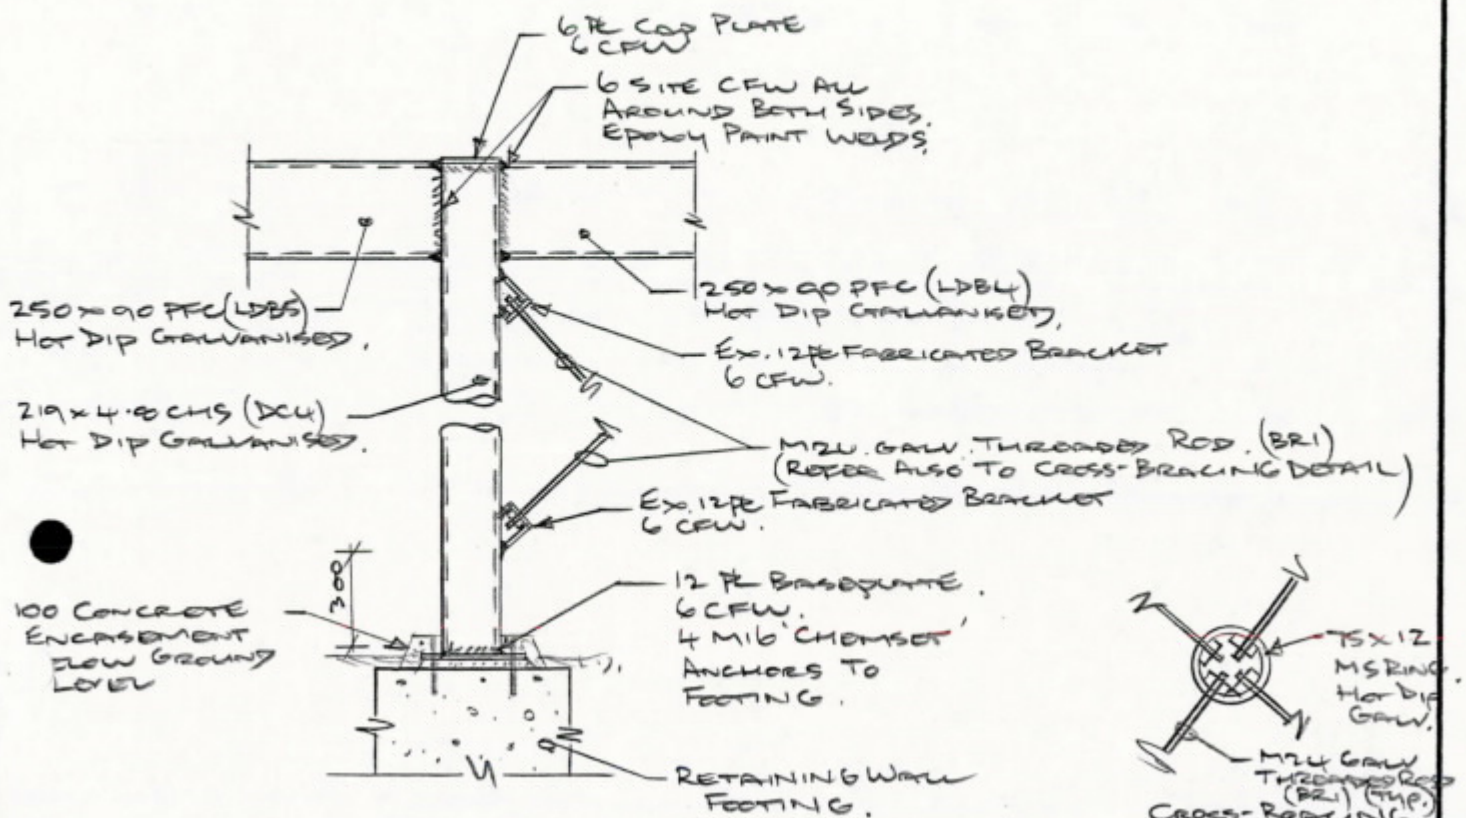 6 PL CAP PLATE
6 CFW
6 SITE CFW ALL
AROUND BOTH SIDES.
EPOXY PAINT WELDS.
250 x 90 PFC (LDB5)
HOT DIP GALVANISED.
250 x 90 PFC (LDB4)
HOT DIP GALVANISED.
EX. 12 PL FABRICATED BRACKET
6 CFW.
219 x 4.8 CHS (DC4)
HOT DIP GALVANISED.
M24 GALV. THREADED ROD. (BR1)
(REFER ALSO TO CROSS-BRACING DETAIL)
EX. 12 PL FABRICATED BRACKET
6 CFW.
300
100 CONCRETE
ENCASEMENT
BELOW GROUND
LEVEL
12 PL BASEPLATE.
6 CFW.
4 M16 'CHEMSET'
ANCHORS TO
FOOTING.
RETAINING WALL
FOOTING.
75 x 12
MS RING.
HOT DIP
GALV.
M24 GALV
THREADED ROD
(BR1) (TYP.)
CROSS-BRACING